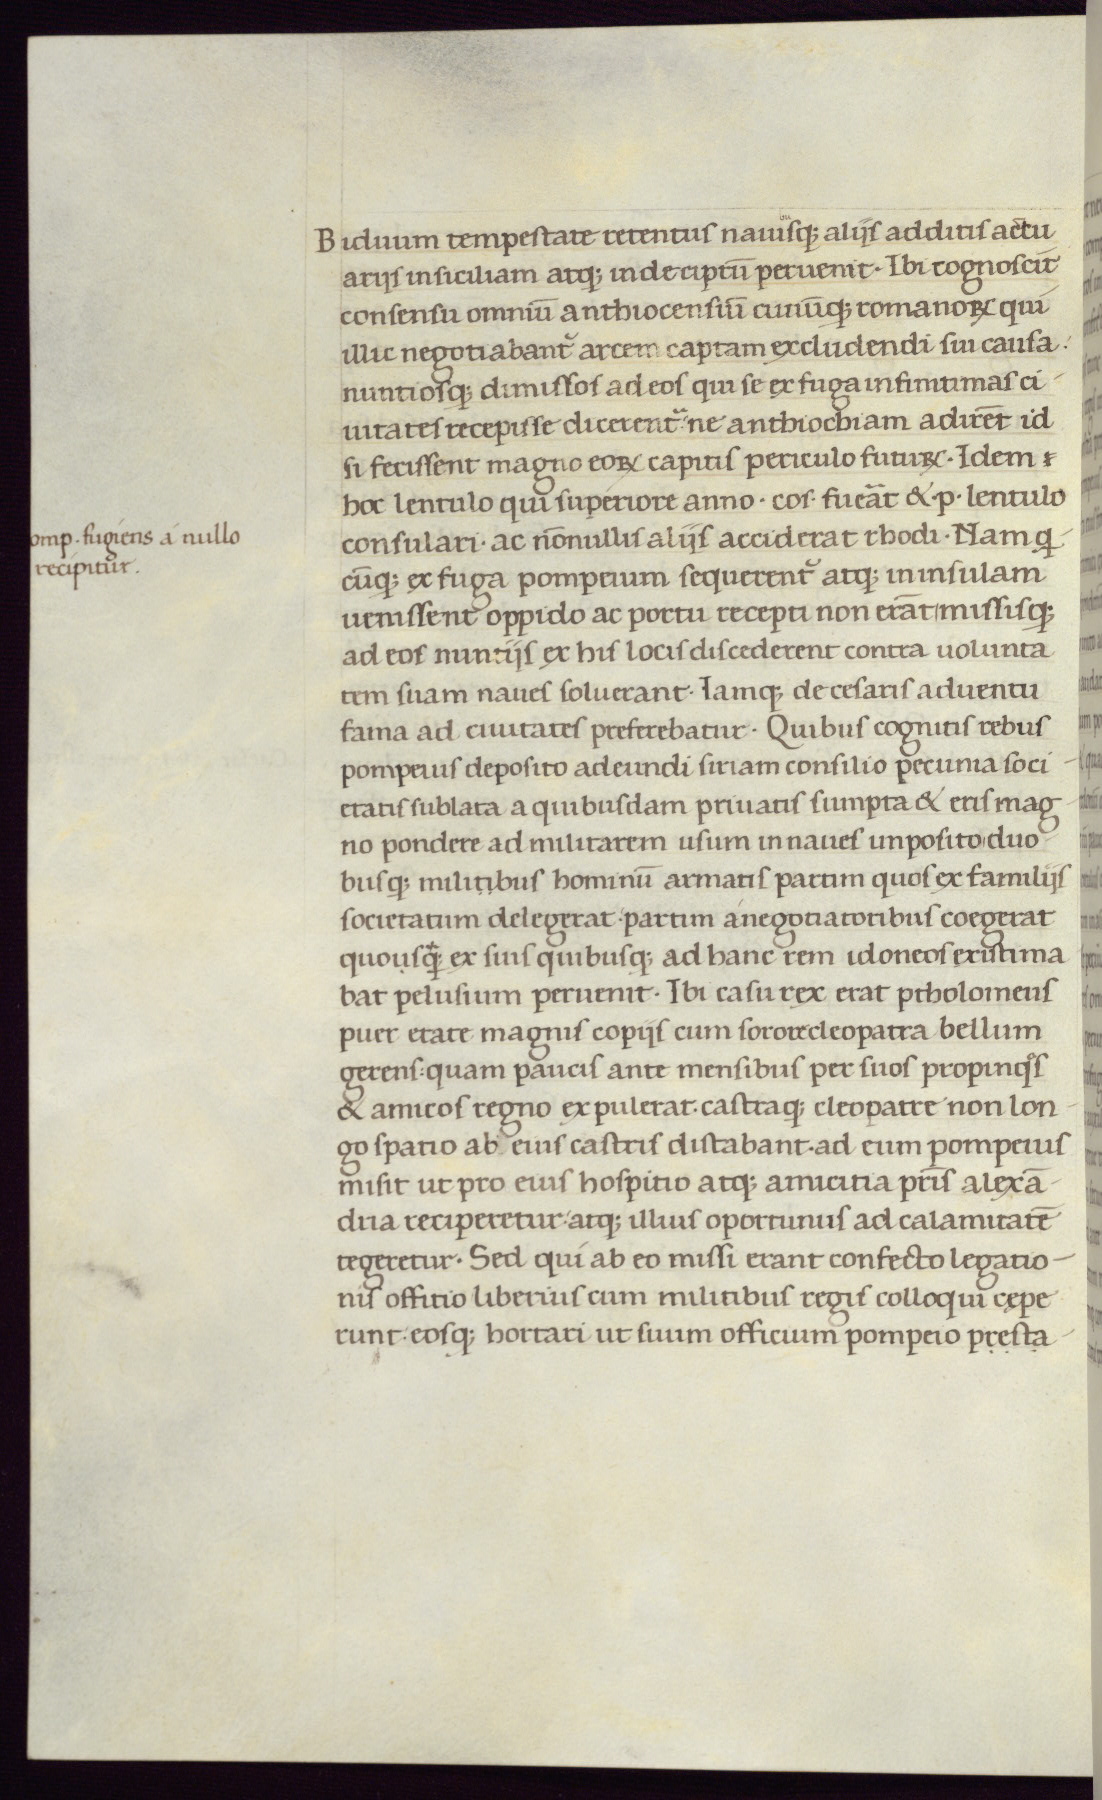 Biduum tempestate retentus nauisq; alijs additis actu
arijs in siciliam atq; inde ciptū peruenit· Ibi cognoscit
consensu omniū anthiocensiū ciuiūq; romanoꝝ qui
illic negotiabant᷑ arcem captam excludendi sui causa·
nuntiosq; dimissos ad eos qui se ex fuga in finitimas ci-
uitates recepisse dicerent᷑ ne anthiochiam adirēt id
si fecissent magno eoꝝ capitis periculo futuꝝ· Idem
hoc lentulo qui superiore anno· cos· fuerāt &·p· lentulo
consulari· ac nōnullis alijs acciderat rhodi· Nam q
cūq; ex fuga pompeium sequerent᷑ atq; in insulam
uenissent oppido ac portu recepti non erāt missisq;
ad eos nuntijs ex his locis discederent contra uolunta
tem suam naues soluerant· Iamq; de cesaris aduentu
fama ad ciuitates preferebatur· Quibus cognitis rebus
pompeius deposito adeundi siriam consilio pecunia soci-
etatis sublata a quibusdam priuatis sumpta & eris mag-
no pondere ad militarem usum in naues imposito duo
busq; militibus hominū armatis partim quos ex familijs
societatum delegerat partim a negotiatoribus coegerat
quousq; ex suis quibusq; ad hanc rem idoneos existima
bat pelusium peruenit· Ibi casu rex erat ptholomeus
puer etate magnis copijs cum sorore cleopatra bellum
gerens: quam paucis ante mensibus per suos propinqos
& amicos regno expulerat· castraq; cleopatre non lon-
go spatio ab eius castris distabant· ad eum pompeius
misit ut pro eius hospitio atq; amicitia pr̄is alexā-
dria reciperetur atq; illius oportunus ad calamitatē
tegeretur· Sed qui ab eo missi erant confecto legatio-
nis offitio liberius cum militibus regis colloqui cępe
runt· eosq; hortari ut suum officium pompeio pręsta-
omp· fugiens a nullo
recipitur.